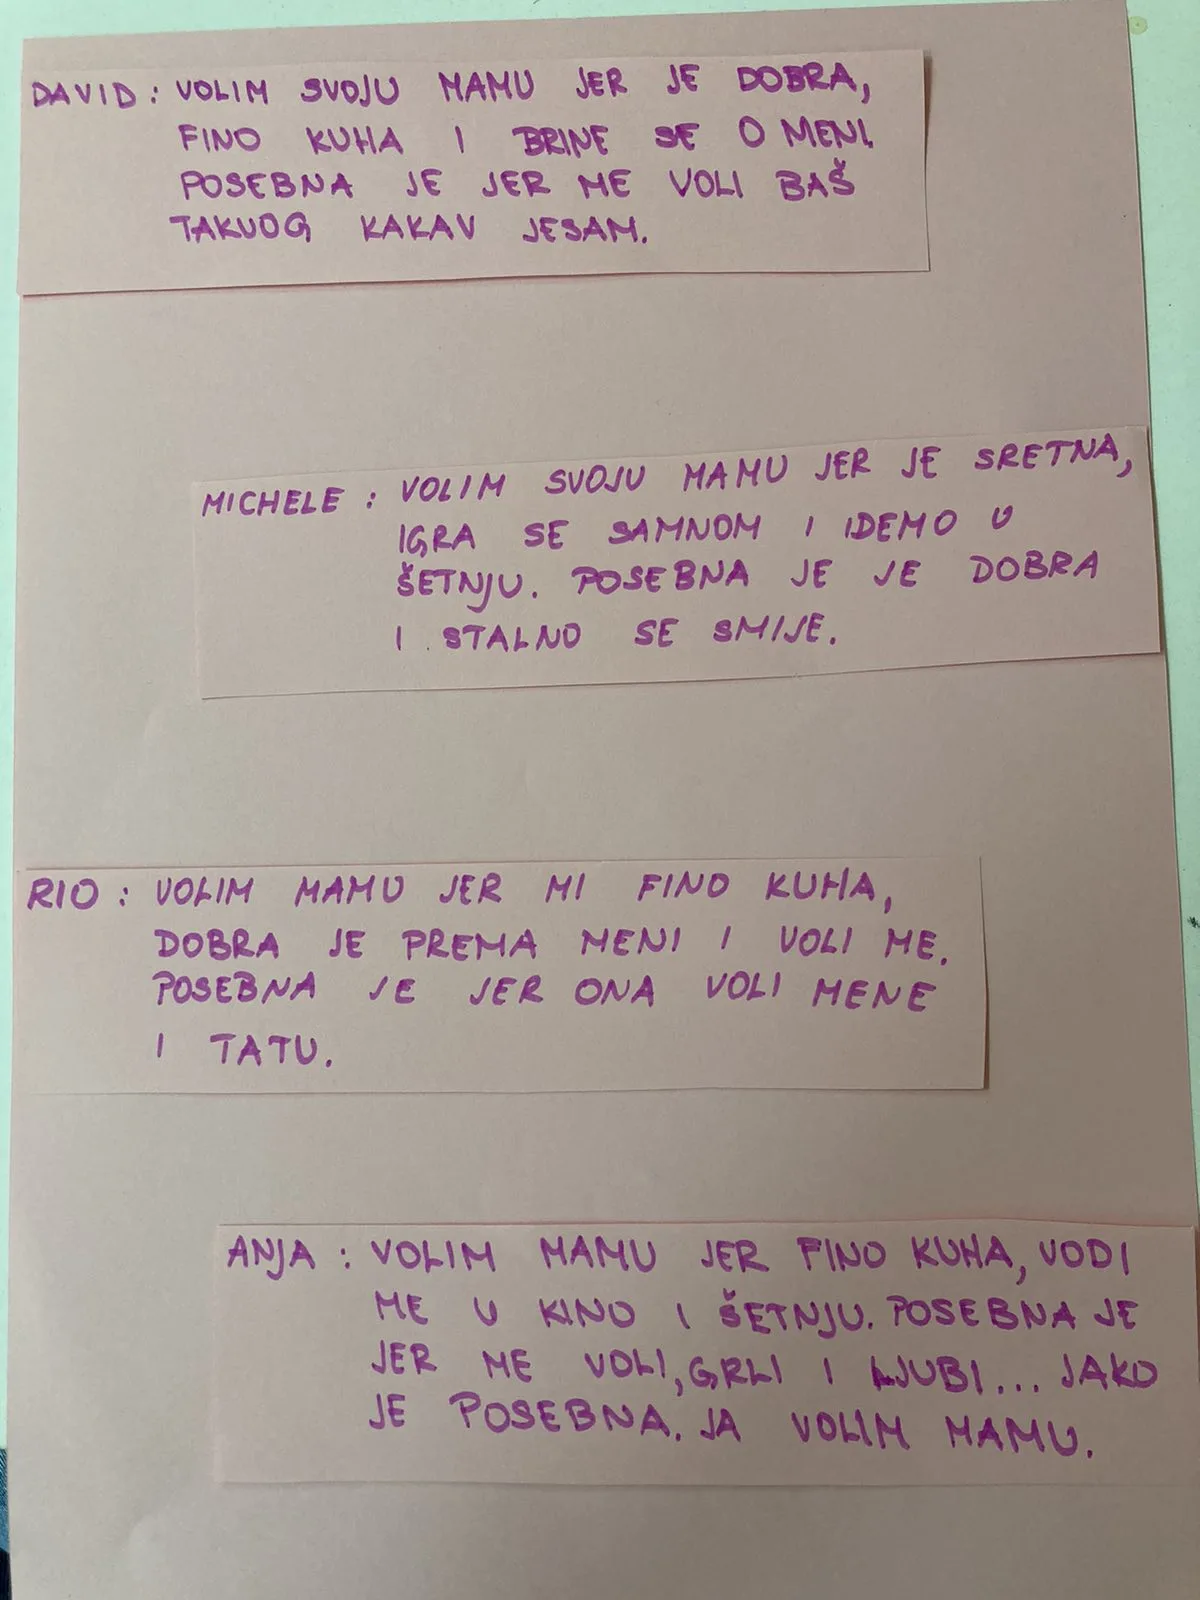 DAVID: VOLIM SVOJU MAMU JER JE DOBRA,
FINO KUHA I BRINE SE O MENI.
POSEBNA JE JER ME VOLI BAŠ
TAKVOG KAKAV JESAM.
MICHELE: VOLIM SVOJU MAMU JER JE SRETNA,
IGRA SE SAMNOM I IDEMO U
ŠETNJU. POSEBNA JE JE DOBRA
I STALNO SE SMIJE.
RIO: VOLIM MAMU JER MI FINO KUHA,
DOBRA JE PREMA MENI I VOLI ME.
POSEBNA JE JER ONA VOLI MENE
I TATU.
ANJA: VOLIM MAMU JER FINO KUHA, VODI
ME U KINO I ŠETNJU. POSEBNA JE
JER ME VOLI, GRLI I LJUBI... JAKO
JE POSEBNA. JA VOLIM MAMU.